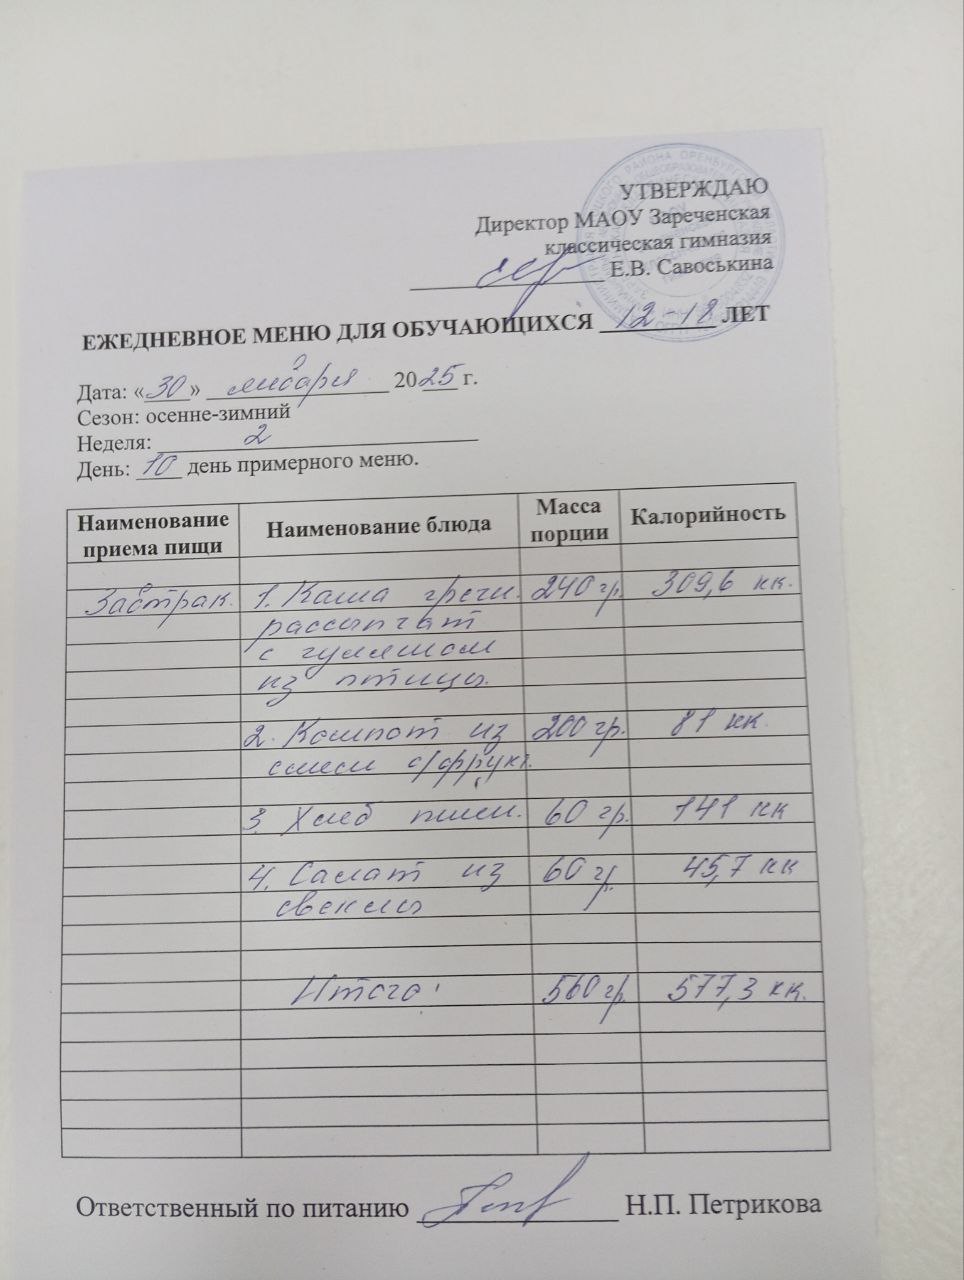 УТВЕРЖДАЮ
Директор МАОУ Зареченская
классическая гимназия
Е.В. Савоськина
ЕЖЕДНЕВНОЕ МЕНЮ ДЛЯ ОБУЧАЮЩИХСЯ 12-18 ЛЕТ
Дата: «30» января 2025 г.
Сезон: осенне-зимний
Неделя: 2
День: 10 день примерного меню.
Наименование приема пищи Наименование блюда Масса порции Калорийность
Завтрак. 1. Каша гречн. 240 гр. 309,6 кк.
рассыпчат
с гуляшом
из птицы.
2. Компот из 200 гр. 81 кк.
смеси с/фрукт.
3. Хлеб пшен. 60 гр. 141 кк
4. Салат из 60 гр. 45,7 кк
свеклы
Итого: 560 гр. 577,3 кк.
Ответственный по питанию Н.П. Петрикова